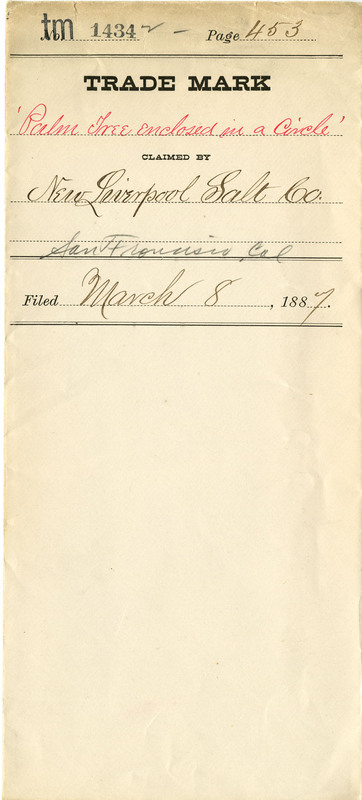 tm 1434 2 - Page 453
TRADE MARK
'Palm Tree enclosed in a Circle'
CLAIMED BY
New Liverpool Salt Co.
San Francisco, Cal
Filed March 8, 1887.